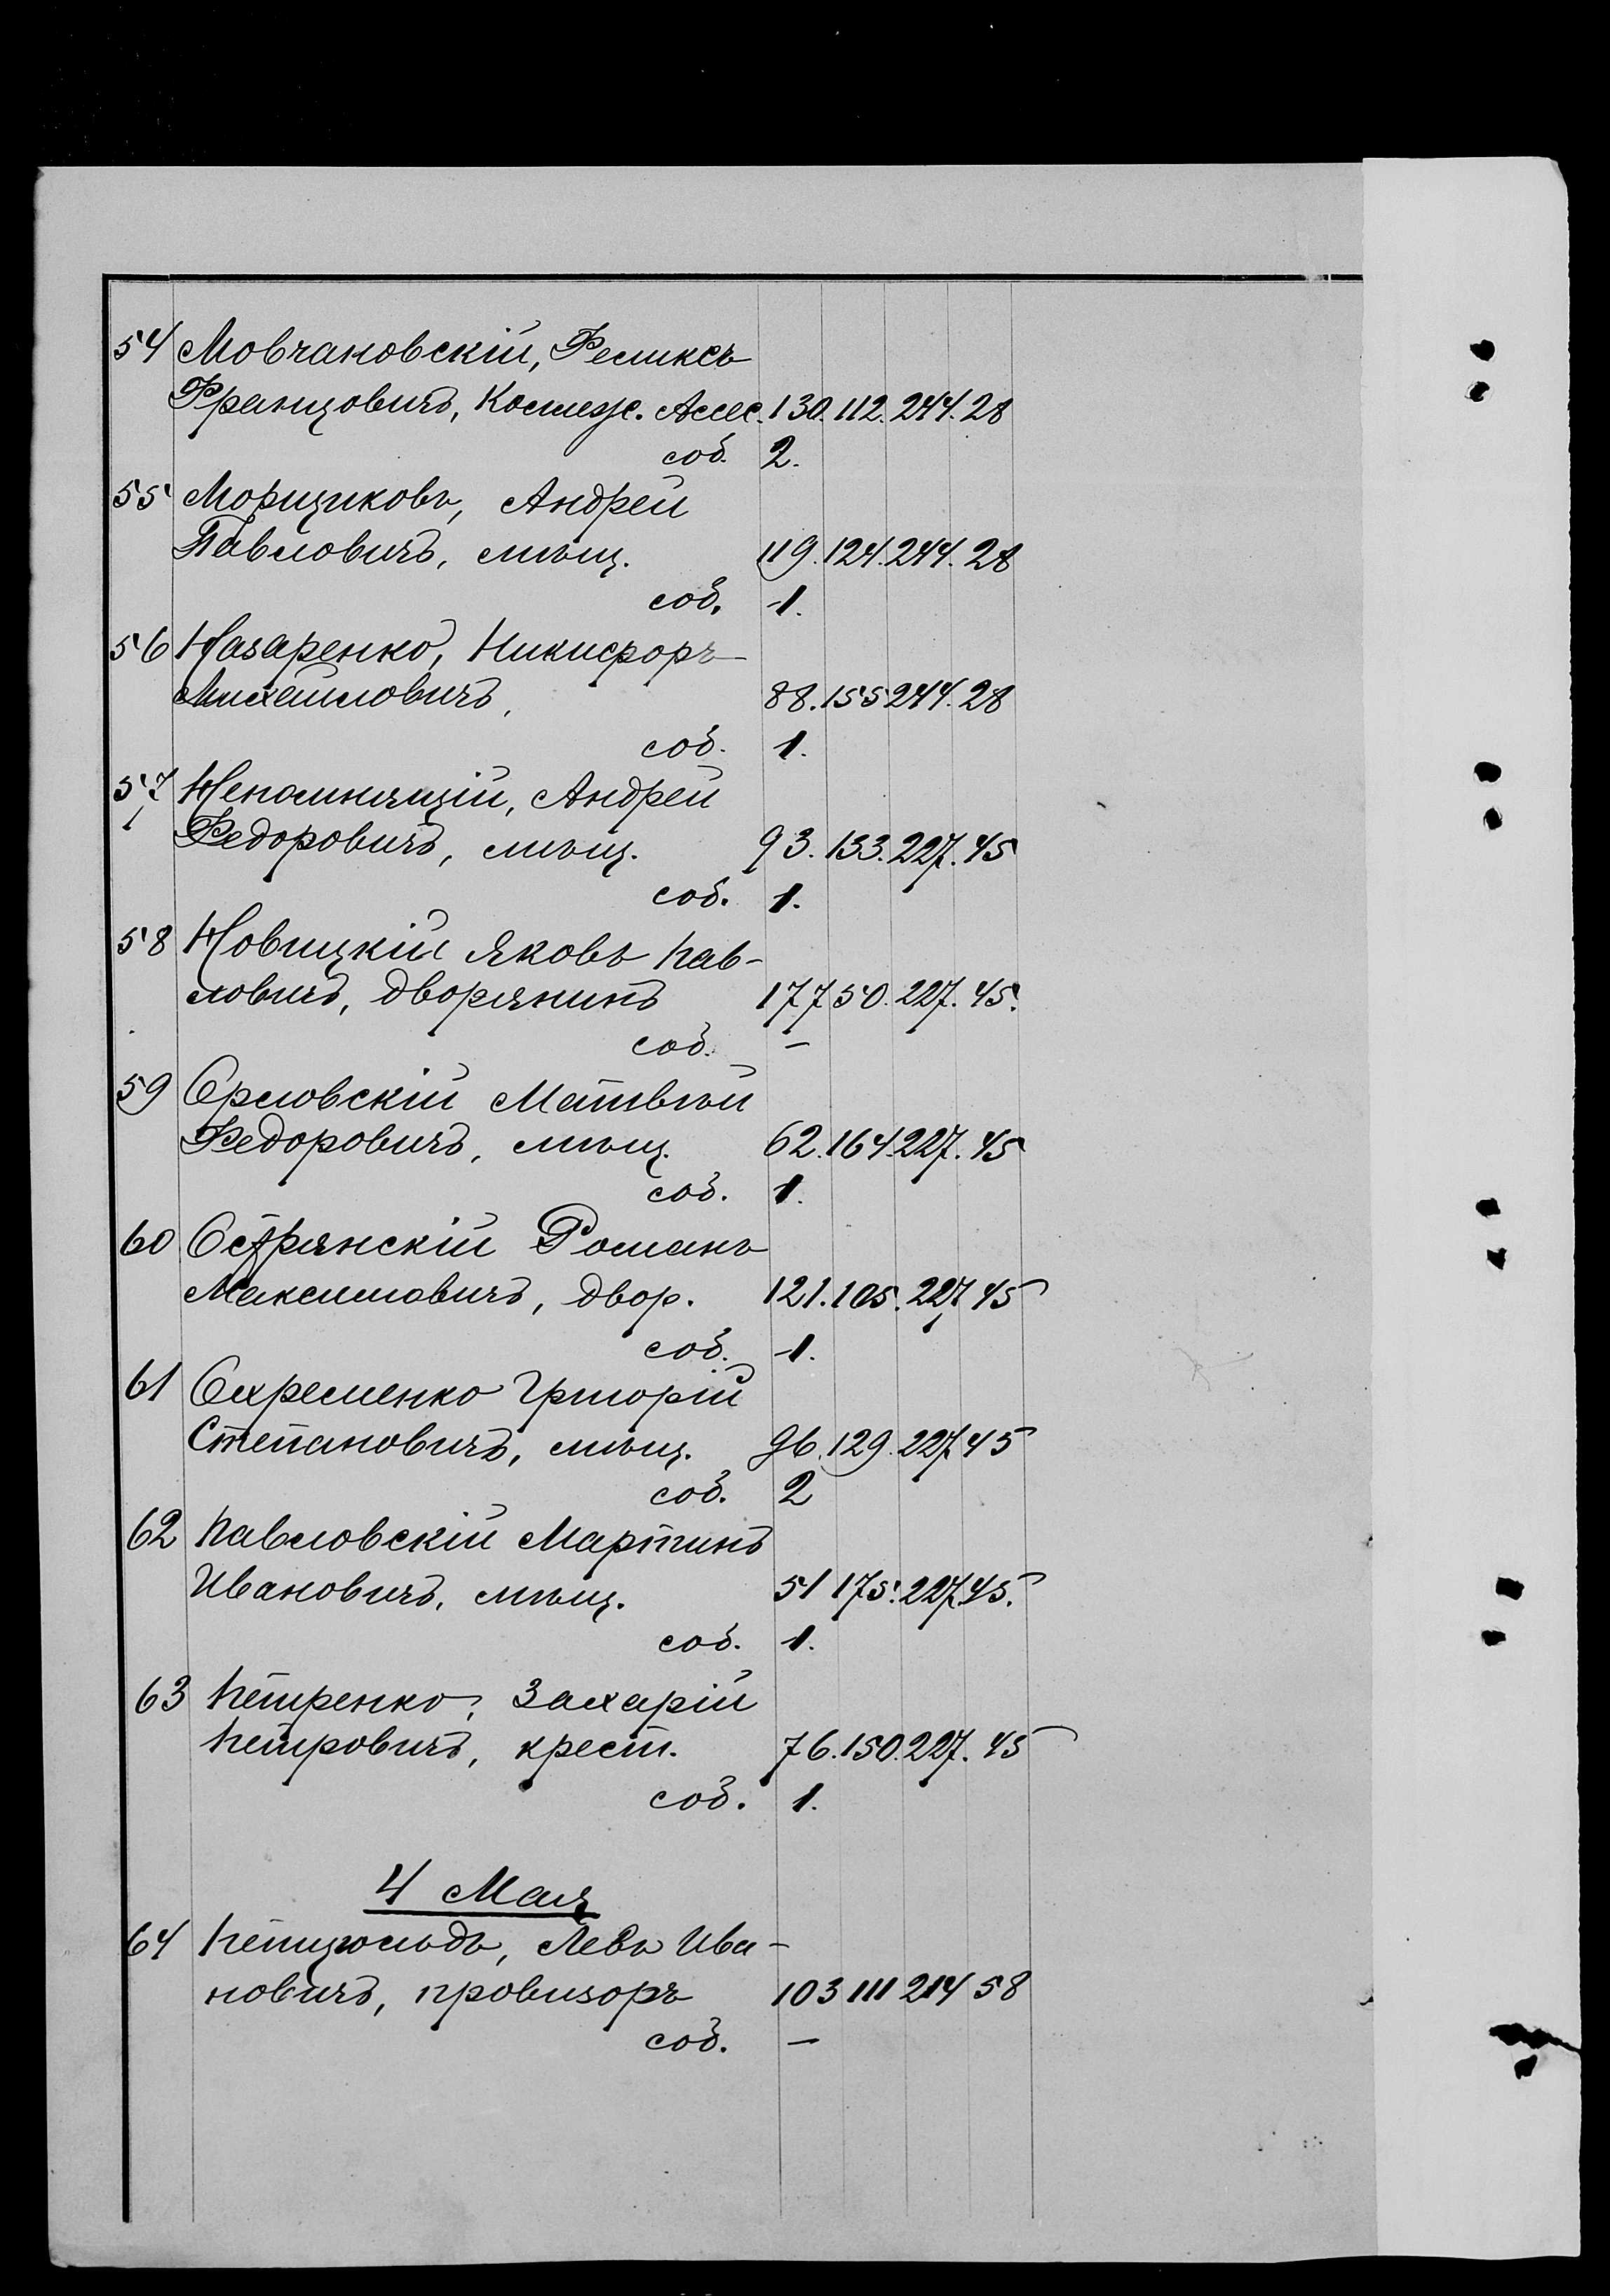 54 Мовчановскій, Феликсъ
Францовичъ, Коллеж. Ассес. 130. 112. 244. 28
соб. 2.
55 Морщиковъ, Андрей
Павловичъ, мѣщ. 119. 124. 244. 28
соб. 1.
56 Назаренко, Никифоръ
Михайловичъ, 88. 155 244. 28
соб. 1.
57 Непомнящій, Андрей
Федоровичъ, мѣщ. 93. 133. 227. 45
соб. 1.
58 Новицкій Яковъ Пав-
ловичъ, дворянинъ 177 50. 227. 45.
соб. –
59 Орловскій Матвѣй
Федоровичъ, мѣщ. 62. 164. 227. 45
соб. 1.
60 Острянскій Романъ
Максимовичъ, двор. 121. 105. 227 45
соб. 1.
61 Охременко Григорій
Степановичъ, мѣщ. 96. 129. 227 45
соб. 2
62 Павловскій Мартинъ
Ивановичъ, мѣщ. 51 175. 227. 45.
соб. 1.
63 Петренко, Захарій
Петровичъ, крест. 76. 150. 227. 45
соб. 1.
4 Мая
64 Петцгольдъ, Левъ Ива-
новичъ, провизоръ 103 111 214 58
соб. –